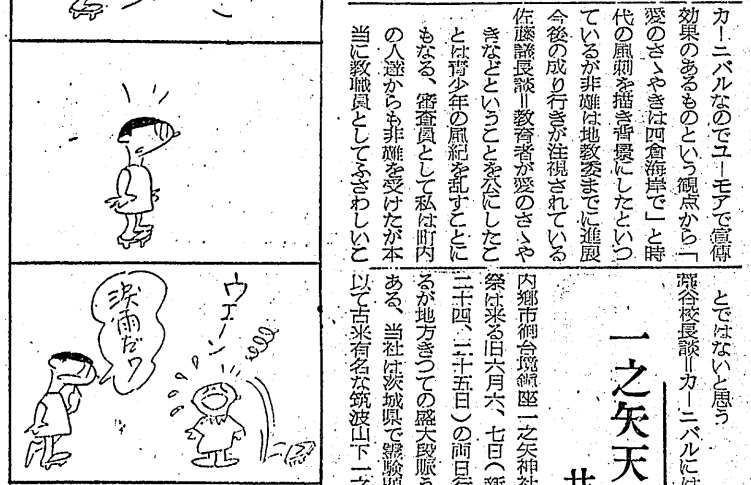 カーニバルなのでユーモアで宣傳
効果のあるものという観点から「
愛のさゝやきは四倉海岸で」と時
代の風刺を描き背景にしたといつ
ているが非難は地教委までに進展
今後の成り行きが注視されている
佐藤議長談＝教育者が愛のさゝや
きなどということを公にしたこ
とは青少年の風紀を乱すことに
もなる、審査員として私は町内
の人達からも非難を受けたが本
当に教職員としてふさわしいこ
とではないと思う
谷校長談＝カーニバルには
一之矢天
内郷市御台境鎮座一之矢神社
祭は来る旧六月六、七日（新
二十四、二十五日）の両日行
るが地方きつての盛大段賑う
ある、当社は茨城県で霊験
以て古来有名な筑波山下一之
ウエーン
涙雨だ？